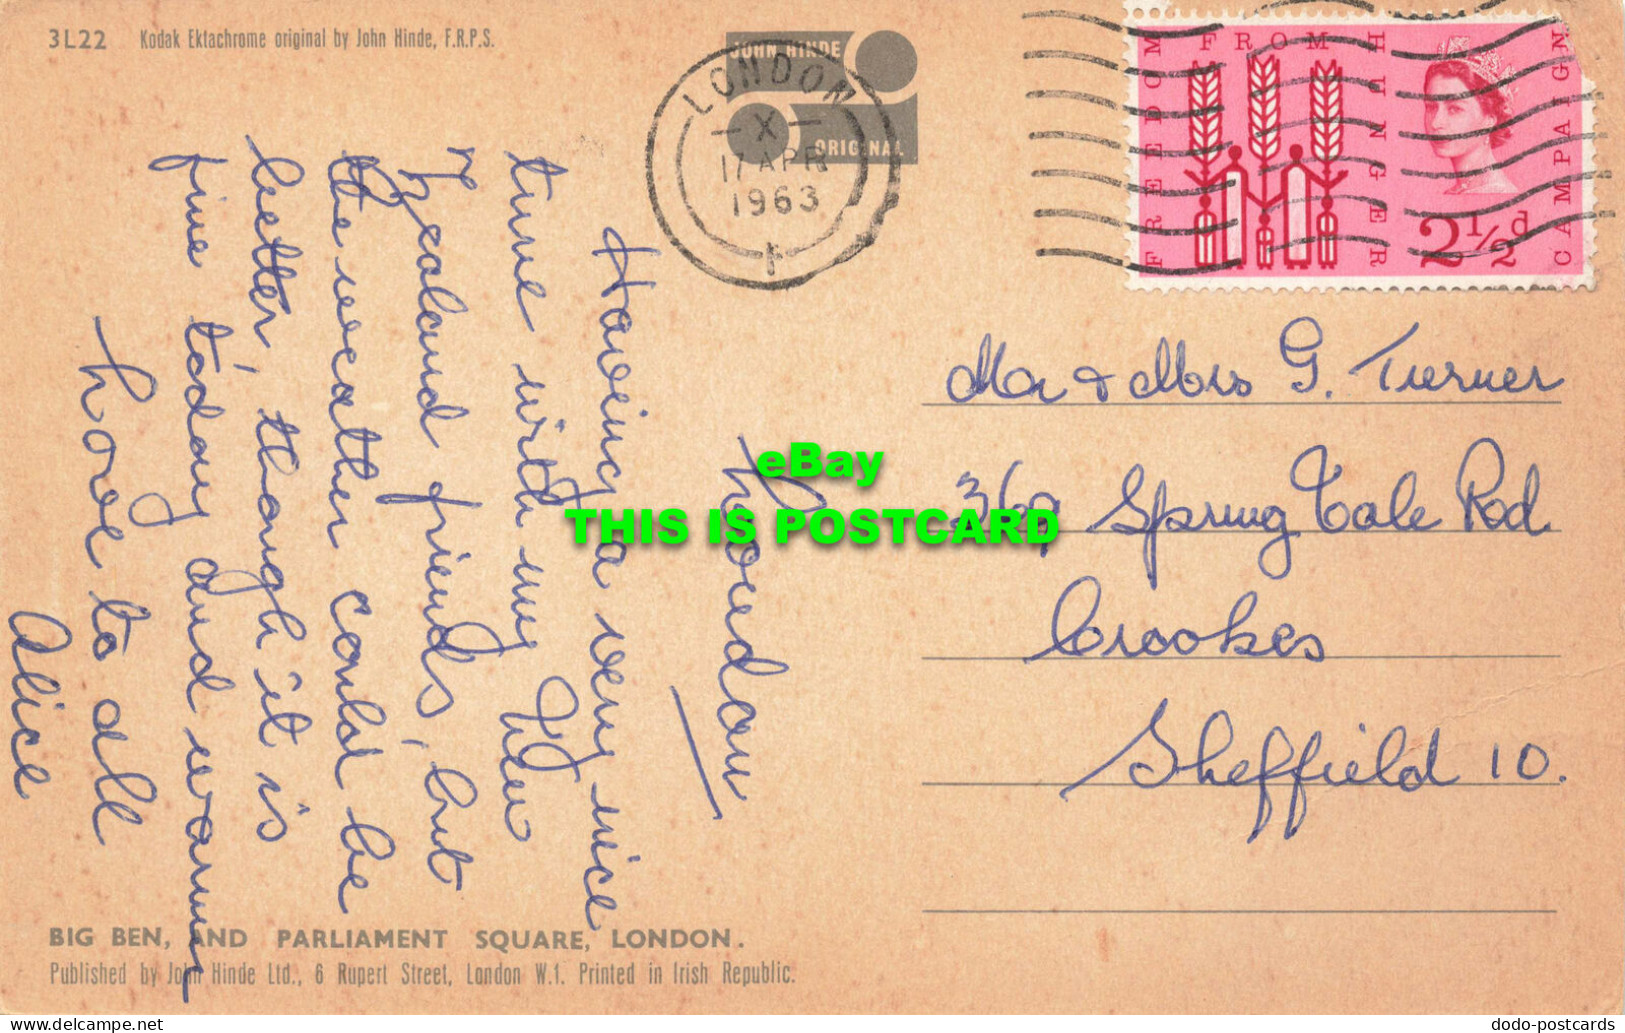 3L22 Kodak Ektachrome original by John Hinde, F.R.P.S.
JOHN HINDE
ORIGINAL
LONDON
X
17 APR
1963
F
FREEDOM FROM HUNGER CAMPAIGN
2½d
London
Having a very nice
time with my New
Zealand friends, but
the weather could be
better, though it is
fine today and warm
Love to all
Alice
Mr & Mrs G. Turner
Spring Vale Rd
Crookes
Sheffield 10.
eBay
THIS IS POSTCARD
BIG BEN, AND PARLIAMENT SQUARE, LONDON.
Published by John Hinde Ltd., 6 Rupert Street, London W.1. Printed in Irish Republic.
dodo-postcards